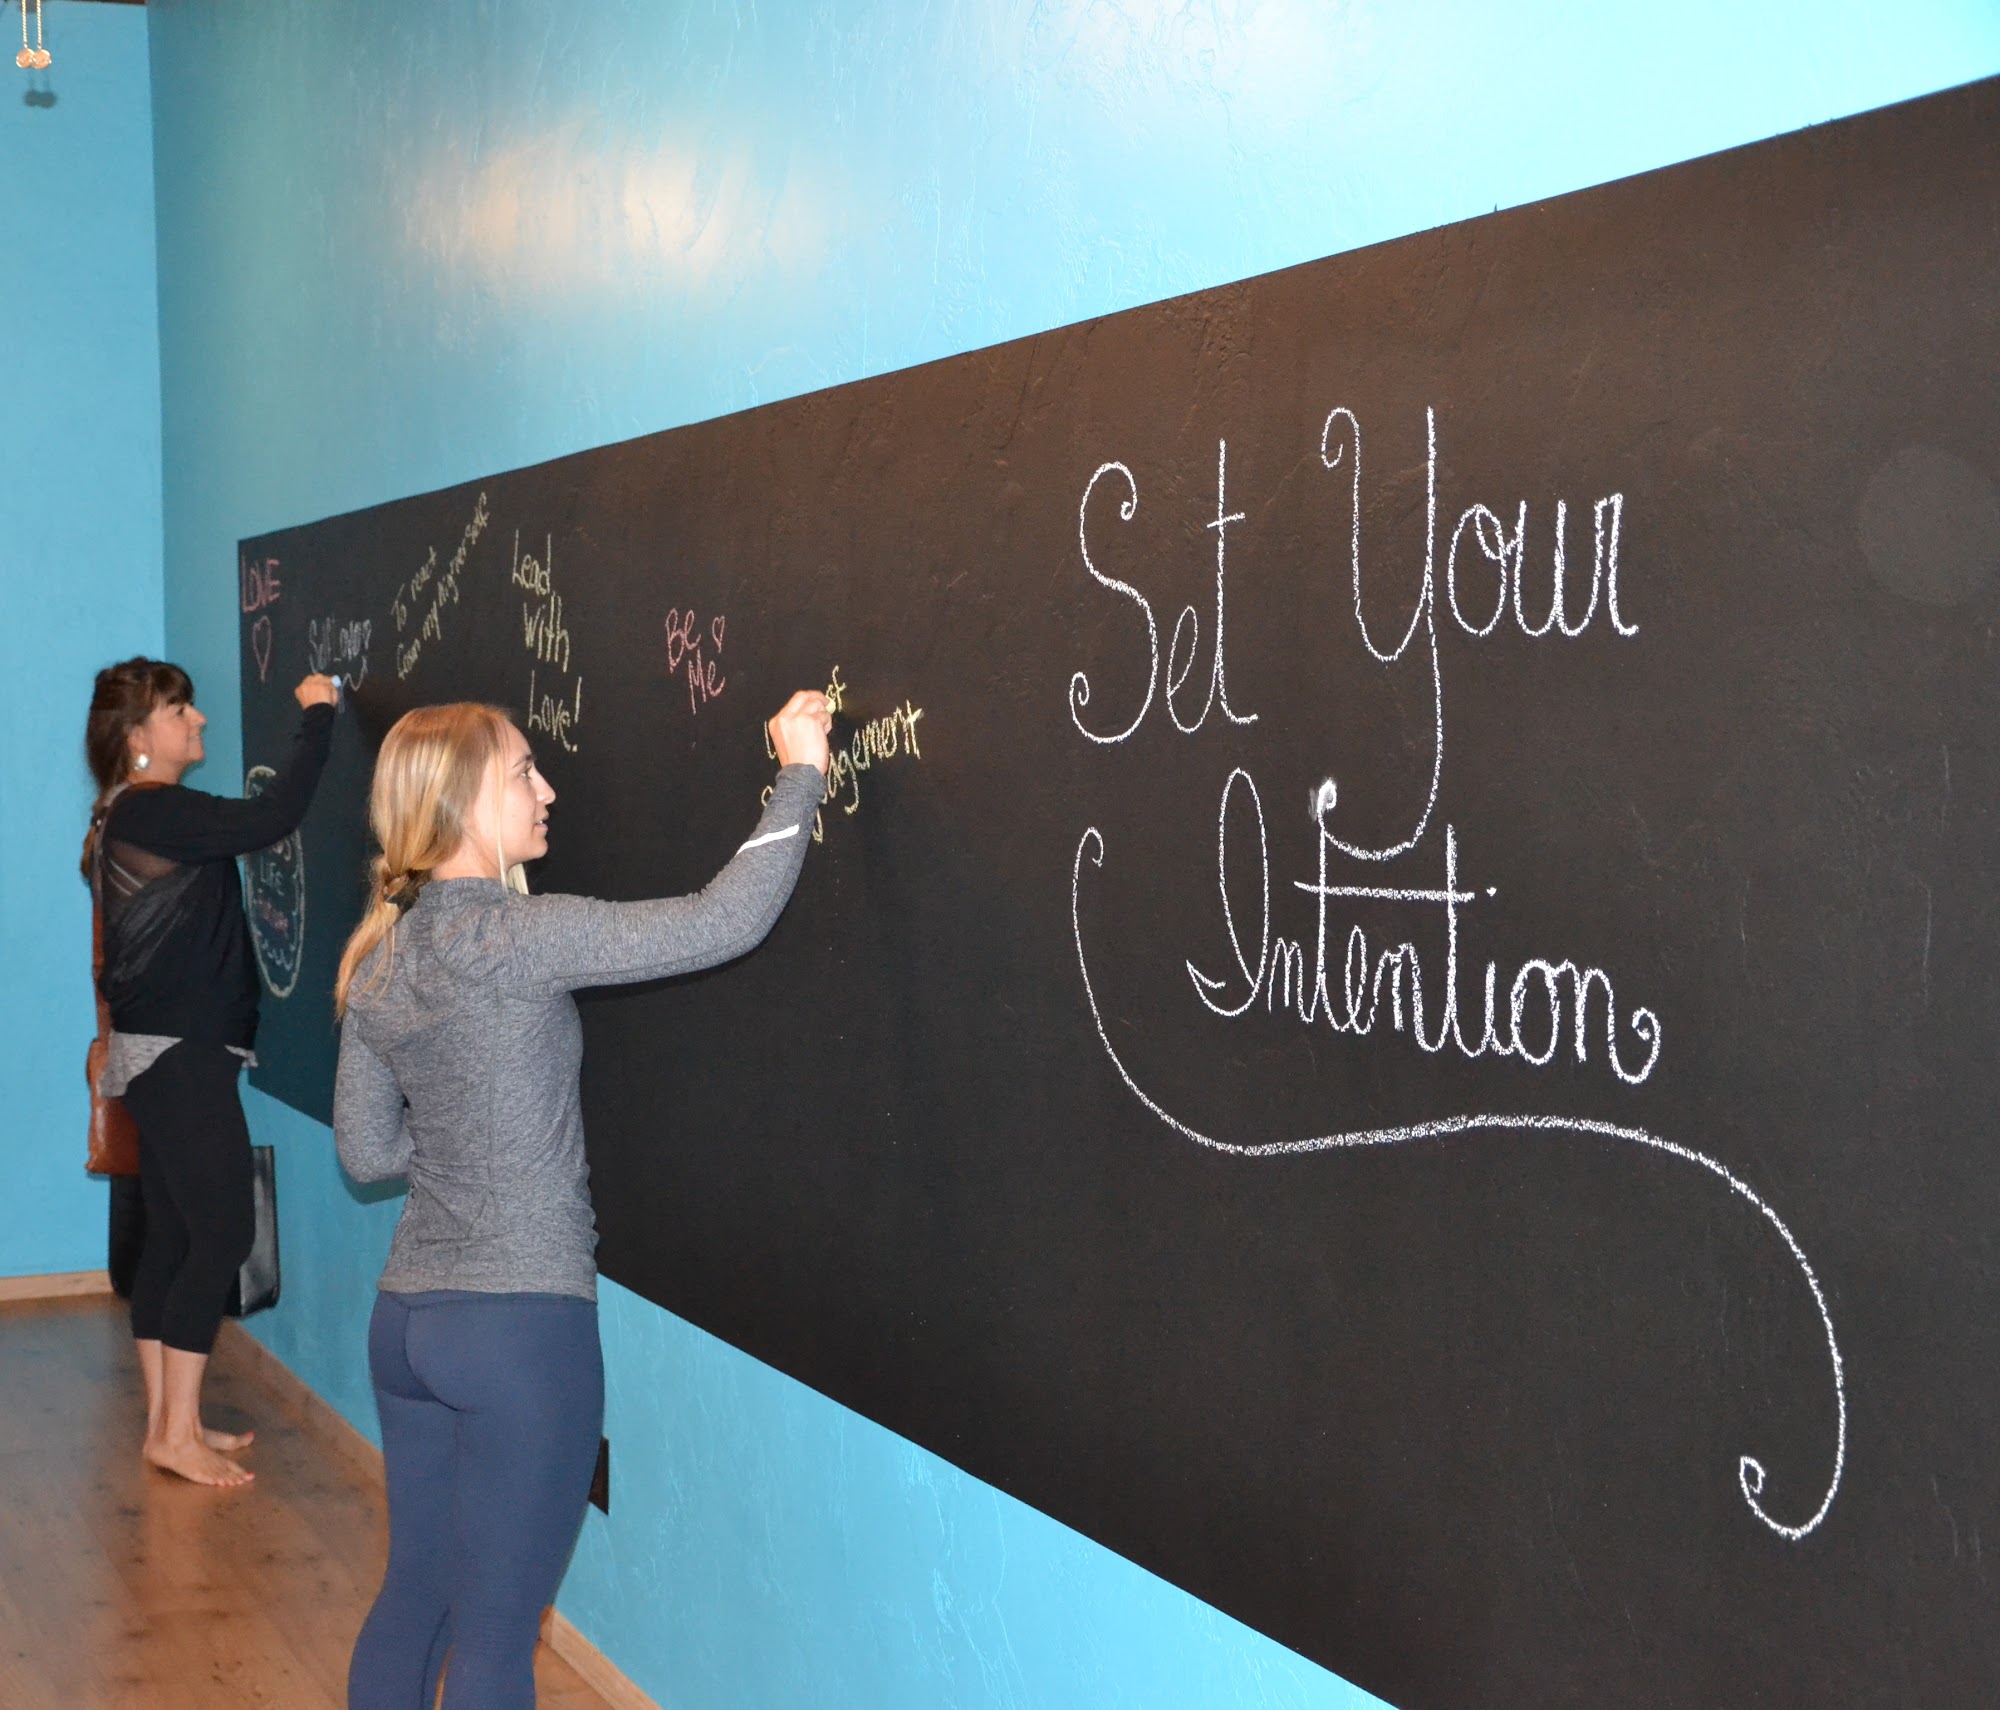 LOVE
Self Love
To react
from my higher self
Lead
With
Love!
Be
Me
of
Set Your
Intention
LIFE